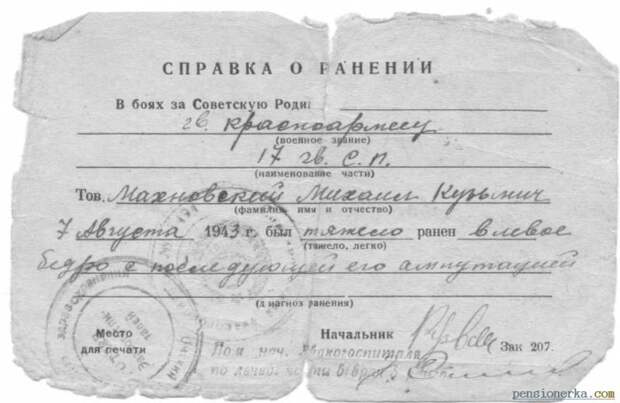 СПРАВКА О РАНЕНИИ
В боях за Советскую Роди
гв. красноармеец
(военное звание)
17 гв. с.п.
(наименование части)
Тов. Махновский Михаил Кузьмич
(фамилия, имя и отчество)
7 Августа 1943 г. был тяжело ранен в левое
(тяжело, легко)
бедро с последующей его ампутацией
(диагноз ранения)
Место
для печати
Начальник
Зак 207.
Пом. нач. эвакогоспиталя
по лечебн. части
pensionerka.com